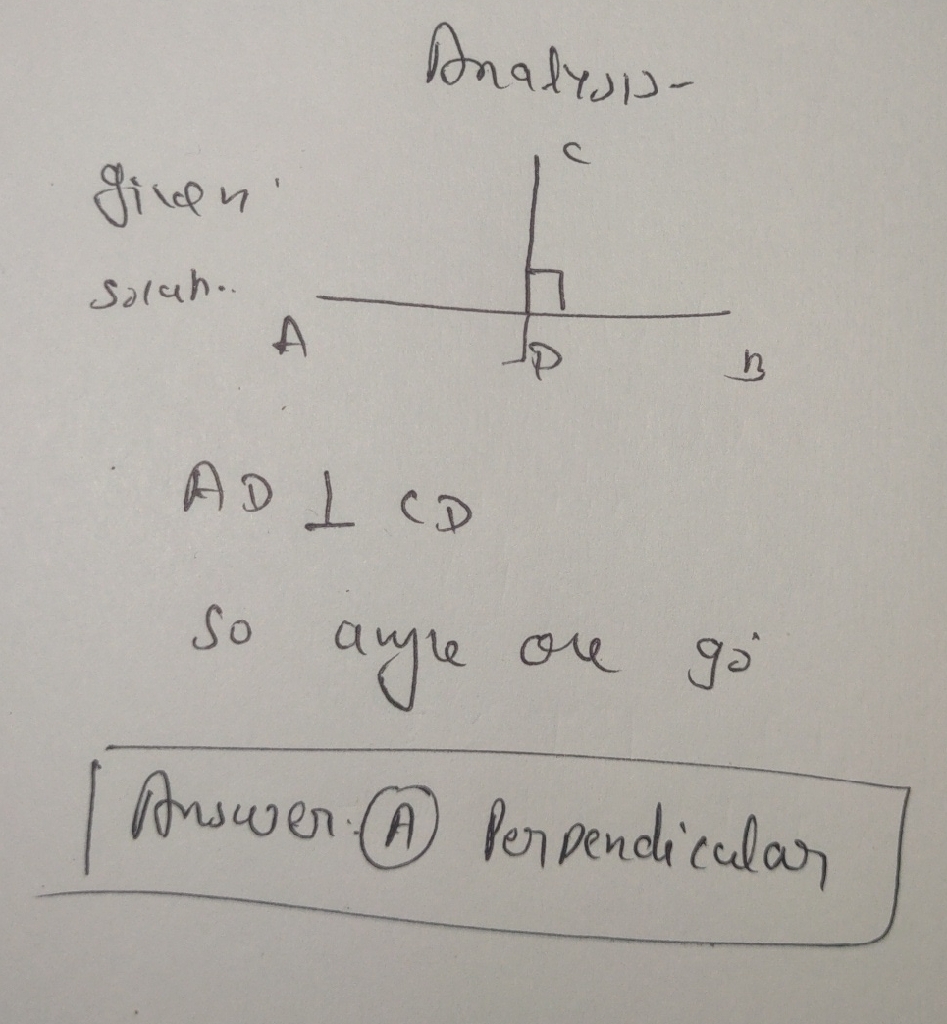 Analysis-
C
given
Soluh..
A
D
B
AD ⊥ CD
So angle are 90°
Answer. (A) Perpendicular